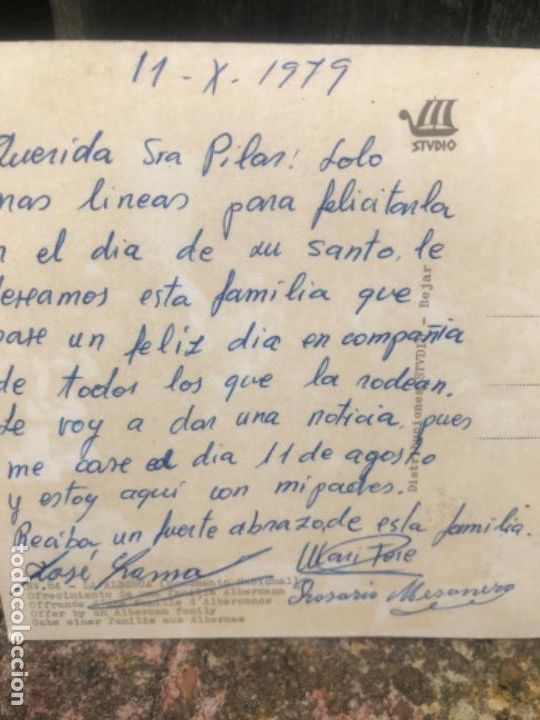 11-X-1979
STVDIO
Querida Sra Pilar: Solo
nas lineas para felicitarla
n el dia de su santo, le
deseamos esta familia que
pase un feliz dia en compañia
de todos los que la rodean.
Le voy a dar una noticia, pues
me case el dia 11 de agosto
y estoy aqui con mi padres.
Reciba, un fuerte abrazo, de esta familia.
José
Mari
Rosario Mesonero
Distribuciones STVDIO - Bejar
Ofrecimiento de una familia Albercana
Offer by an Albercan family
Gabe einer familie aus Alberca
todocoleccion.net